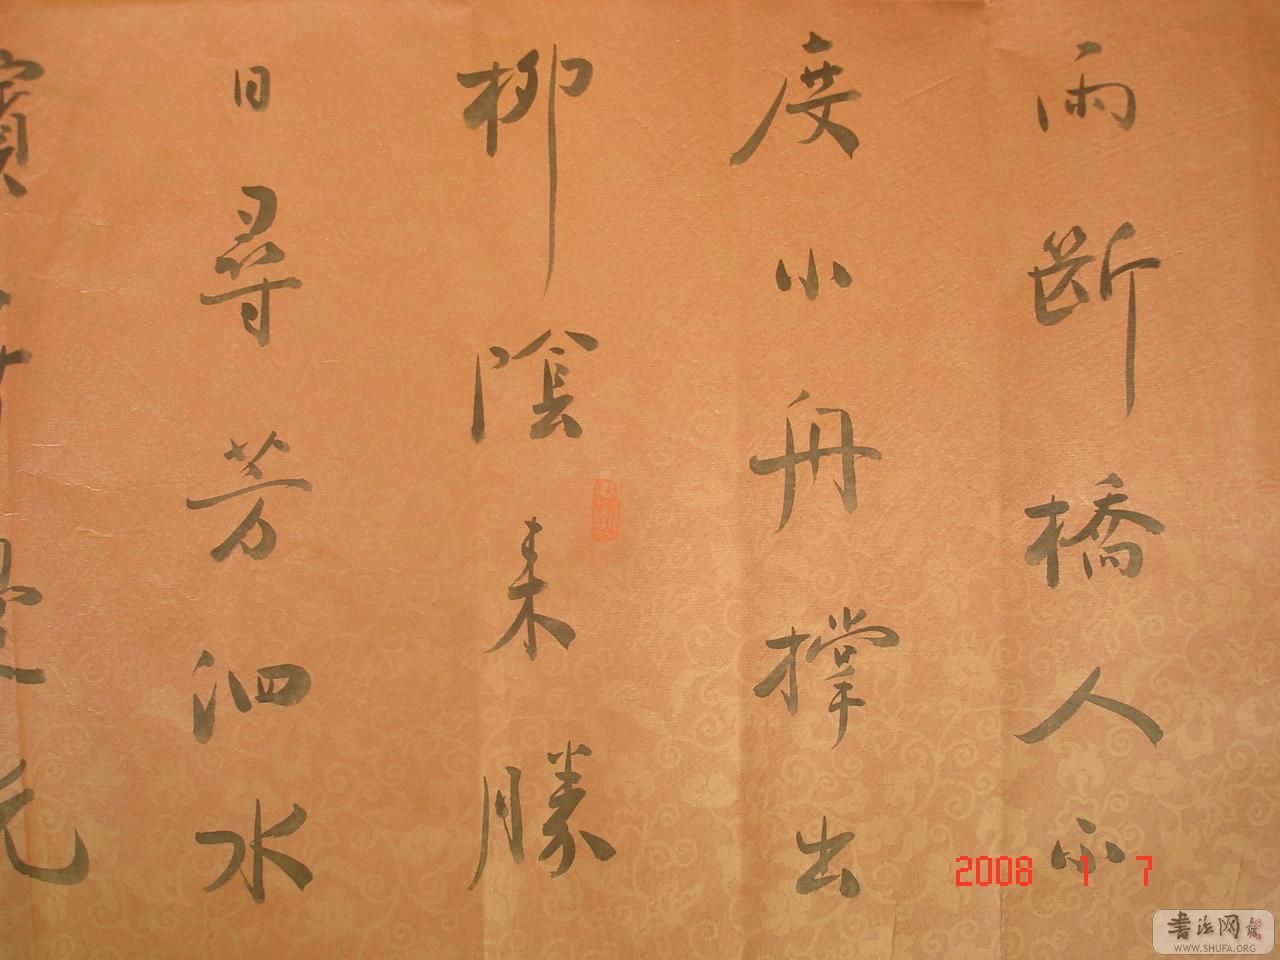 雨斷橋人不
度小舟撐出
柳陰来勝
日尋芳泗水
濱
2008 1 7
書法网
WWW.SHUFA.ORG